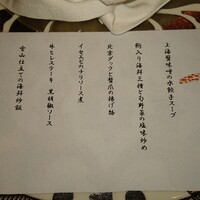 上海蟹味噌の水餃子スープ
駒入り海鮮三種と旬野菜の塩味炒め
北京ダックと蟹爪の揚げ物
イセエビのチリソース煮
牛ヒレステーキ 黒胡椒ソース
雪山仕立ての海鮮炒飯